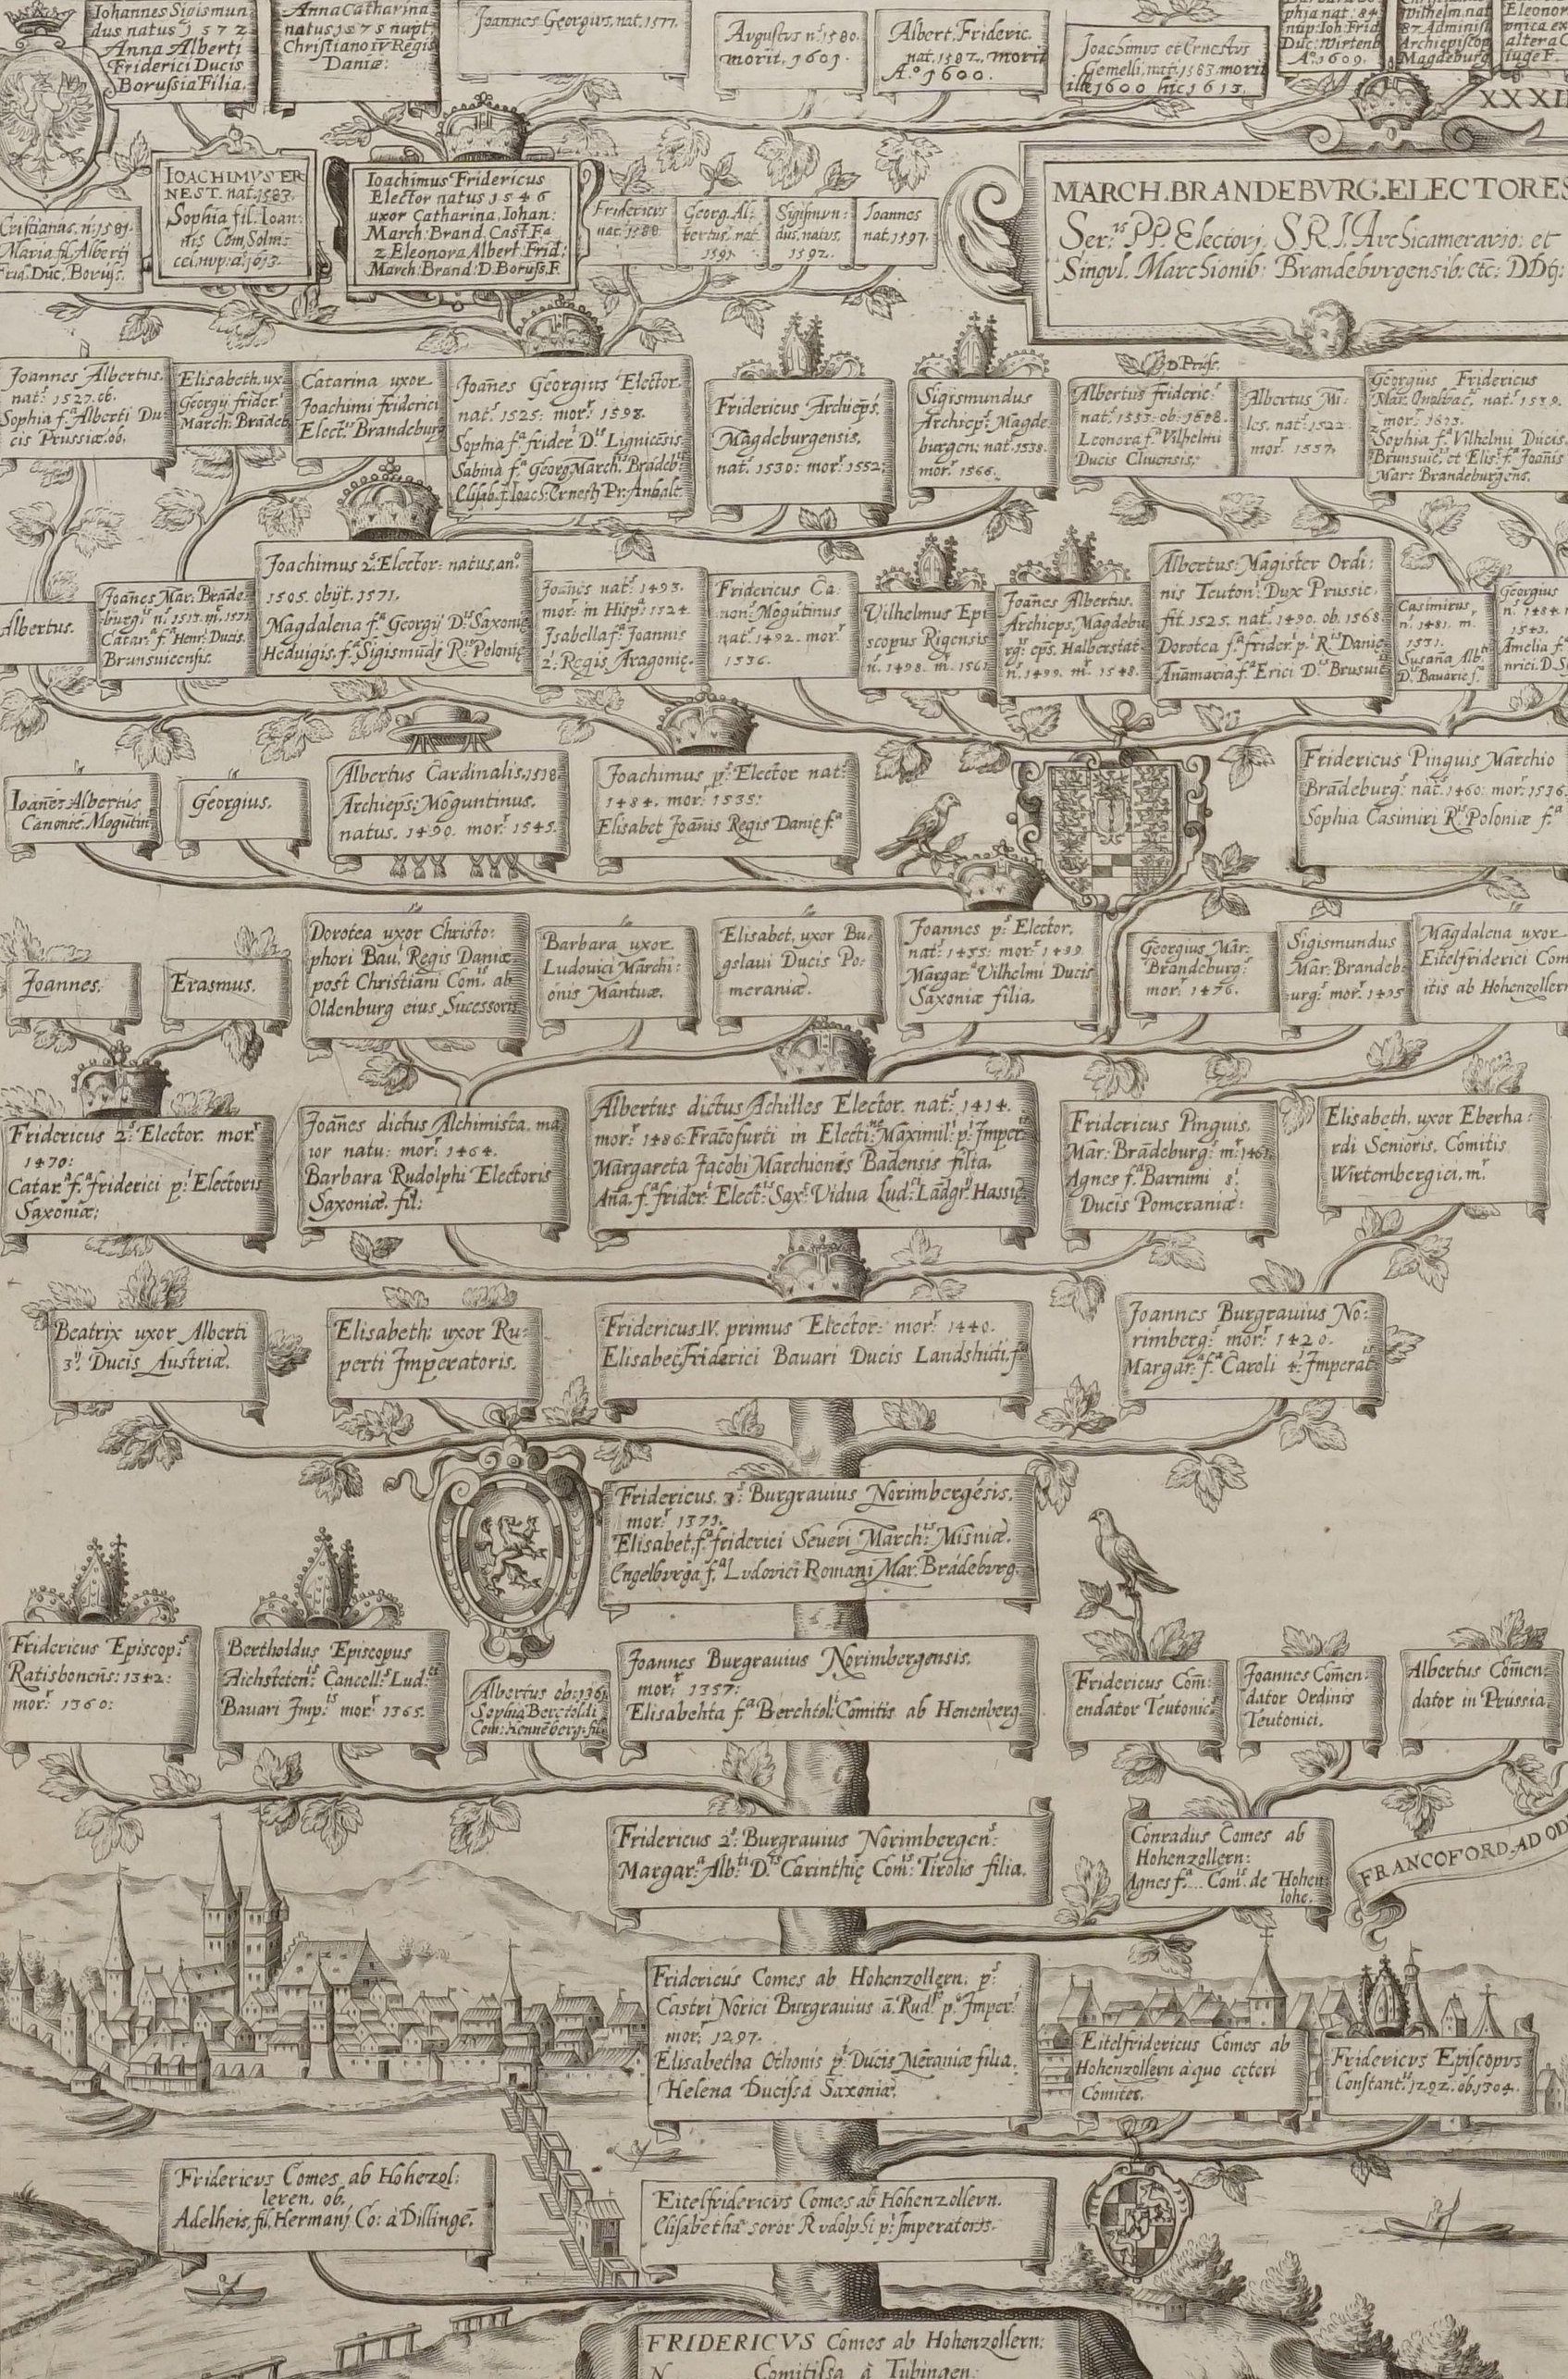 Iohannes Sigismun
dus natus 1572
Anna Alberti
Friderici Ducis
Borussia Filia.
Anna Catharina
natus 1575 nupt,
Christiano IV Regis
Daniæ:
Joannes Georgius, nat. 1577.
Augustus n: 1580.
morit, 1601.
Albert, Frideric.
nat, 1582, morit
A.º 1600.
Joachimus et Ernestus
Gemelli, nat: 1583. morit
ille 1600 hic 1613.
phia nat: 84
nup: Ioh: Frid
Duc: Wirtenb
A.º 1609.
Wilhelm. nat
87 Administ
Archiepiscop
Magdeburg
Eleonor
altera C
iuge F.
XXXII
IOACHIMVS ER
NEST. nat. 1583.
Sophia fil. Ioan:
nis Com, Solms
cel. nup: aº 1613.
Cristianus. n: 1581.
Maria fil Alberti
Frid: Duc. Boruss.
Ioachimus Fridericus
Elector natus 1546
uxor Catharina, Iohan:
March: Brand. Cast. Fa
2 Eleonora Albert. Frid:
March: Brand: D. Boruss. F.
Fridericus
nat. 1588
Georg. Al:
bertus. nat.
1591.
Sigismun:
dus, natus,
1592.
Joannes
nat. 1597.
MARCH. BRANDEBVRG. ELECTORES
Ser.ᵐ P.P. Electori, S.R.I. Archicamerario: et
Singvl. Marchionib: Brandebvrgensib: etc: DD
Joannes Albertus.
nat. 1527. ob.
Sophia fᵃ Alberti Du:
cis Prussiæ. ob.
Elisabeth. ux
Georgy frider
March: Bradeb
Catarina uxor
Joachimi friderici
Elect.ⁱˢ Brandeburg
Joañes Georgius Elector.
natˢ 1525: morʳ 1598.
Sophia fᵃ friderⁱ Dⁱˢ Lignicēsis
Sabina fᵃ Georg March: Brādeb:
Elisab. f. Ioach: Ernesty Pr: Anhalt.
Fridericus Archiep͞s
Magdeburgensis.
natˢ 1530: morʳ 1552:
Sigismundus
Archiepˢ Magde
burgen: nat. 1538.
morʳ 1566.
D. Pruss.
Albertus frideric:
natˢ 1553: ob. 1608.
Leonora fᵃ Vilhelmi
Ducis Clivensis:
Albertus Mi:
les. natˢ 1522.
morʳ 1557.
Georgius Fridericus
Mar: Onolbac, natˢ 1539.
morʳ 1603.
Sophia fᵃ Vilhelmi Ducis
Brunsuic, et Elisˢ fᵃ Joañis
Mar: Brandeburgens.
Albertus.
Joañes Mar: Brāde
burgⁱˢ nˢ 1513. mʳ 1571
Catarᵃ fᵃ Henr: Ducis
Brunsuicensis.
Joachimus 2ˢ Elector: natus, anº
1505. obijt. 1571.
Magdalena fᵃ Georgy Dⁱˢ Saxonie
Heduigis. fᵃ Sigismūdi Rⁱˢ Polonie
Joañes natˢ 1493.
morʳ in Hispᵃ 1524.
Isabella fᵃ Joannis
2ⁱ Regis Aragonie.
Fridericus Ca:
non: Mogūtinus
natˢ 1492. morʳ
1536.
Vilhelmus Epi
scopus Rigensis
nˢ 1498. mʳ 1563
Joañes Albertus.
Archiepˢ, Magdebu
rgⁱˢ epˢ. Halberstat
nˢ 1499. mʳ 1548.
Albertus: Magister Ordi:
nis Teuton: Dux Prussie,
fit. 1525. natˢ 1490. ob. 1568
Dorotea fᵃ frider. pⁱ Rⁱˢ Danie
Añamaria fᵃ Erici Dⁱˢ Brusuic
Casimirus,
nˢ 1481. m.
1531.
Susaña Alb.
Dⁱˢ Bavarie f.ᵃ
Georgius
nˢ 1484.
1543.
Amelia fᵃ
nrici. D. S
Ioañes Albertus
Canonic. Mogūtin
Georgius.
Albertus Cardinalis. 1518
Archiep͞s: Moguntinus.
natus. 1490. morʳ 1545.
Joachimus pˢ Elector natˢ
1484. morʳ 1535:
Elisabet Joañis Regis Danie f.ᵃ
Fridericus Pinguis Marchio
Brādeburgˢ natˢ 1460: morʳ 1536
Sophia Casimiri Rⁱˢ Poloniæ fᵃ
Joannes.
Erasmus.
Dorotea uxor Christo:
phori Bauⁱ Regis Daniæ
post Christiani Comⁱˢ ab
Oldenburg eius Sucessoris
Barbara uxor
Ludouici Marchi:
onis Mantuæ.
Elisabet, uxor Bu:
gslaui Ducis Po:
meraniæ.
Joannes pˢ Elector,
natˢ 1455: morʳ 1499.
Margarᵃ Vilhelmi Ducis
Saxoniæ filia.
Georgius Mar:
Brandeburgˢ
morʳ 1476.
Sigismundus
Mar: Brandeb:
urgˢ morʳ 1495
Magdalena uxor
Eitelfriderici Com
itis ab Hohenzollern
Fridericus 2ˢ Elector. morʳ
1470:
Catarᵃ fᵃ friderici pⁱ Electoris
Saxoniæ:
Joañes dictus Alchimista. ma
ior natu: morʳ 1464.
Barbara Rudolphi Electoris
Saxoniæ. fil:
Albertus dictus Achilles Elector. natˢ 1414.
morʳ 1486: Frācofurti in Electi:ⁿᵉ Maximilⁱ pⁱ Imper
Margareta Jacobi Marchionis Badensis filia.
Aña. fᵃ friderⁱ Electⁱˢ Saxᵉ Vidua Lud: Lādgr: Hassie
Fridericus Pinguis.
Mar: Brādeburgˢ mʳ 1463
Agnes fᵃ Barnimi 8ⁱ
Ducis Pomeraniæ:
Elisabeth, uxor Eberha:
rdi Senioris, Comitis
Wirtembergici, mʳ
Beatrix uxor Alberti
3ⁱ Ducis Austriæ.
Elisabeth: uxor Ru:
perti Imperatoris.
Fridericus IV. primus Elector: morʳ 1440.
Elisabet, Friderici Bauari Ducis Landshuti. fᵃ
Joannes Burgrauius No:
rimbergˢ morʳ 1420.
Margarᵃ fᵃ Caroli 4ⁱ Imperat
Fridericus, 3ˢ Burgrauius Norimbergēsis,
morʳ 1371.
Elisabet. fᵃ friderici Seueri Marchⁱˢ Misniæ.
Engelburga fᵃ Ludovici Romani Mar: Brādeburg.
Fridericus Episcopˢ
Ratisboneñs: 1342:
morʳ 1360:
Bertholdus Episcopus
Aichstetenⁱˢ Cancellˢ Lud:
Bauari Impⁱˢ morʳ 1365.
Albertus ob: 1361
Sophia Berctoldi
Com: Henneberg. fil
Joannes Burgrauius Norimbergensis.
morʳ 1357:
Elisabehta fᵃ Berchtolⁱ Comitis ab Henenberg
Fridericus Com̄:
endator Teutonic
Joannes Com̄en:
dator Ordinis
Teutonici.
Albertus Com̄en:
dator in Prussia
Fridericus 2ˢ: Burgrauius Norimbergenˢ:
Margarᵃ Albᵗⁱ Dⁱˢ Carinthię Comⁱˢ Tirolis filia.
Conradus Comes ab
Hohenzollern:
Agnes fᵃ .... Comⁱˢ de Hohen
lohe.
FRANCOFORD. AD OD
Fridericus Comes ab Hohenzollern, pˢ
Castri Norici Burgrauius ā Rudᵖº pº Imperʳ
morʳ 1297.
Elisabetha Othonis pⁱ Ducis Meraniæ filia.
Helena Ducissa Saxoniæ.
Eitelfridericus Comes ab
Hohenzollern à quo cęteri
Comites.
Fridericvs Episcopvs
Constantⁱˢ 1292. ob. 1304.
Fridericvs Comes ab Hohenzol:
leren. ob.
Adelheis, fil. Hermanj Co: à Dillingē.
Eitelfridericvs Comes ab Hohenzollern.
Elisabetha soror Rvdolphi pⁱ Imperatoris.
FRIDERICVS Comes ab Hohenzollern:
N Comitissa à Tubingen: